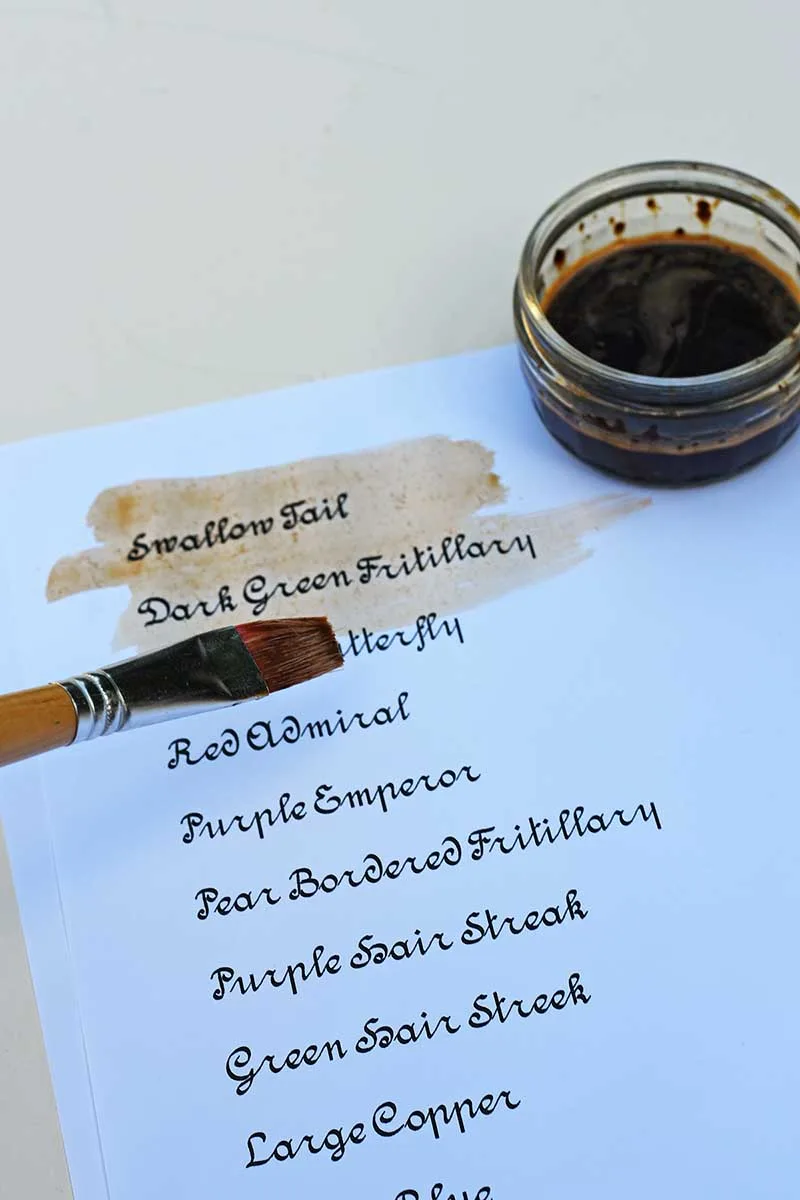 Swallow Tail
Dark Green Fritillary
Red Admiral
Purple Emperor
Pear Bordered Fritillary
Purple Hair Streak
Green Hair Streek
Large Copper
Blue